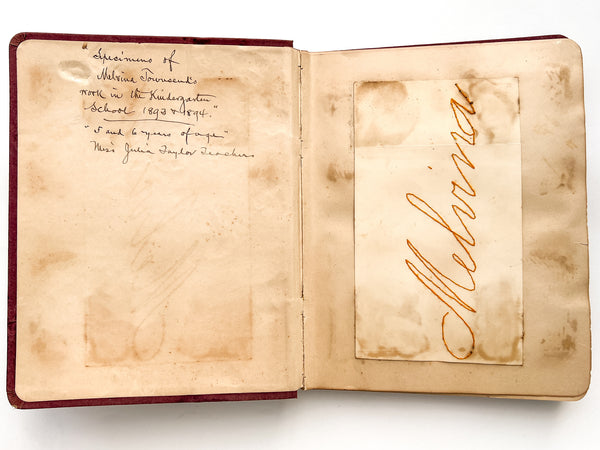 "Specimens of
Melvina Townsend's
work in the Kindergarten
School 1893 & 1894."
"5 and 6 years of age"
Miss Julia Taylor Teacher
Melvina